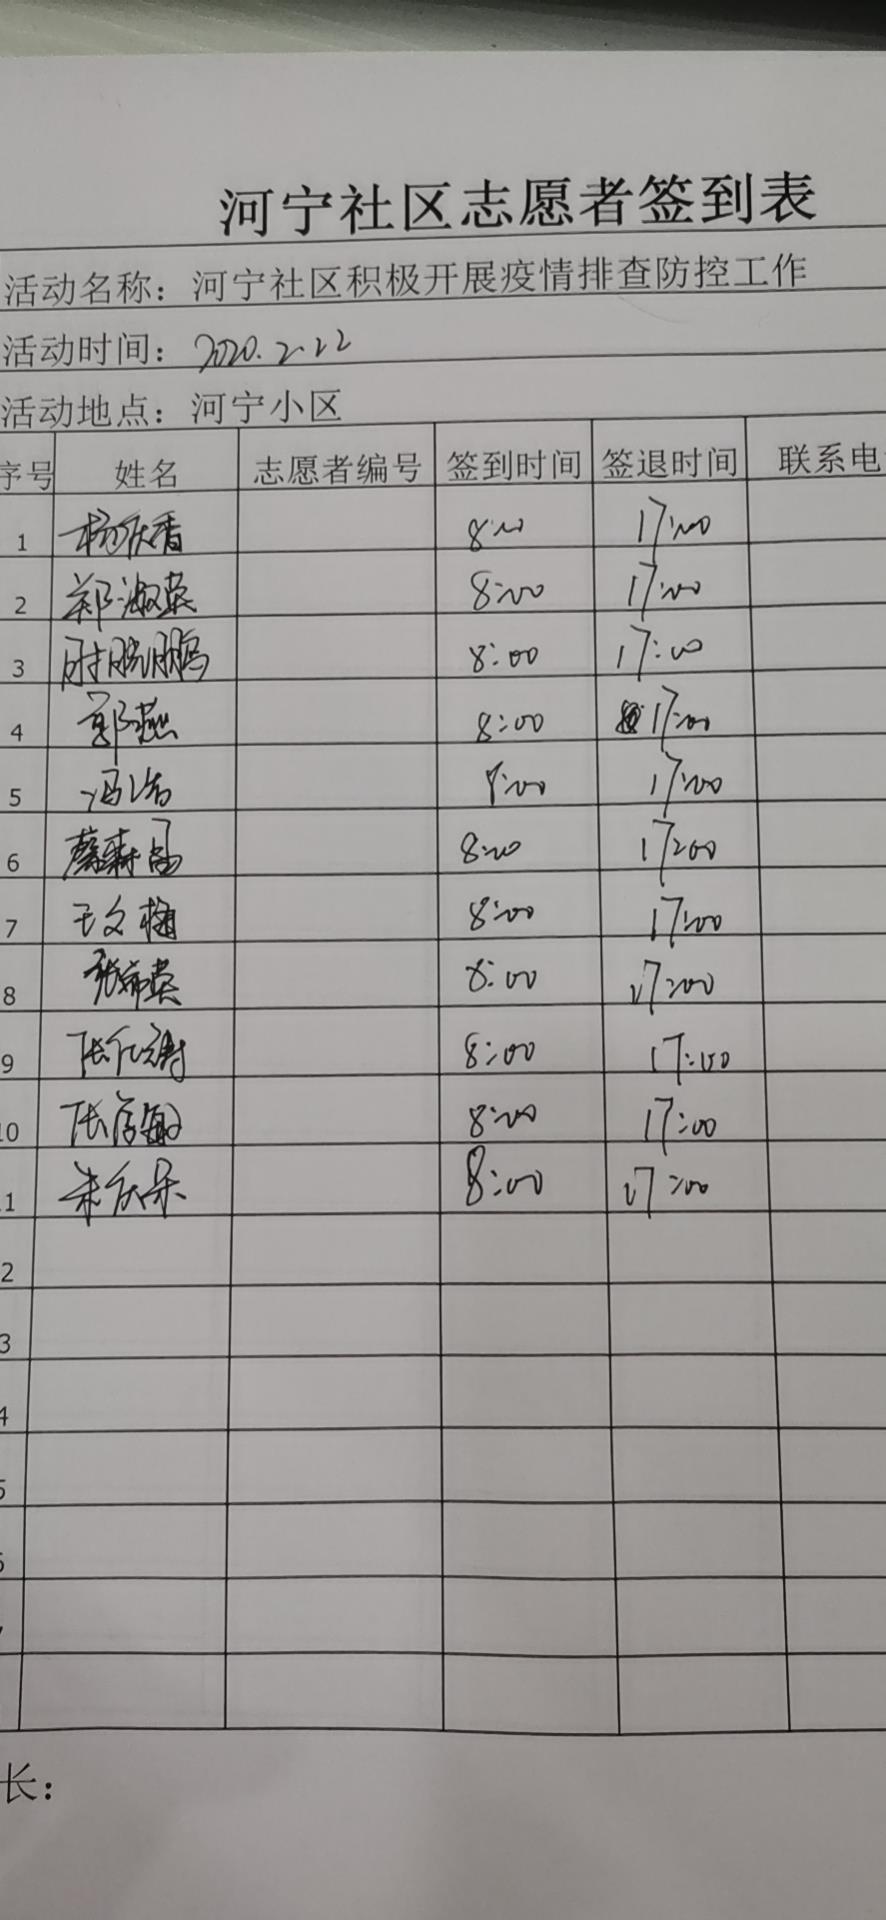 河宁社区志愿者签到表
活动名称：河宁社区积极开展疫情排查防控工作
活动时间：2020.2.22
活动地点：河宁小区
序号 姓名 志愿者编号 签到时间 签退时间 联系电
1 杨庆香 8:00 17:00
2 郑淑英 8:00 17:00
3 鹏 8:00 17:00
4 郭燕 8:00 17:00
5 冯浩 8:00 17:00
6 8:00 17:00
7 王文梅 8:00 17:00
8 张希英 8:00 17:00
9 张 8:00 17:00
10 张 8:00 17:00
11 朱庆朵 8:00 17:00
2
3
4
5
6
长：